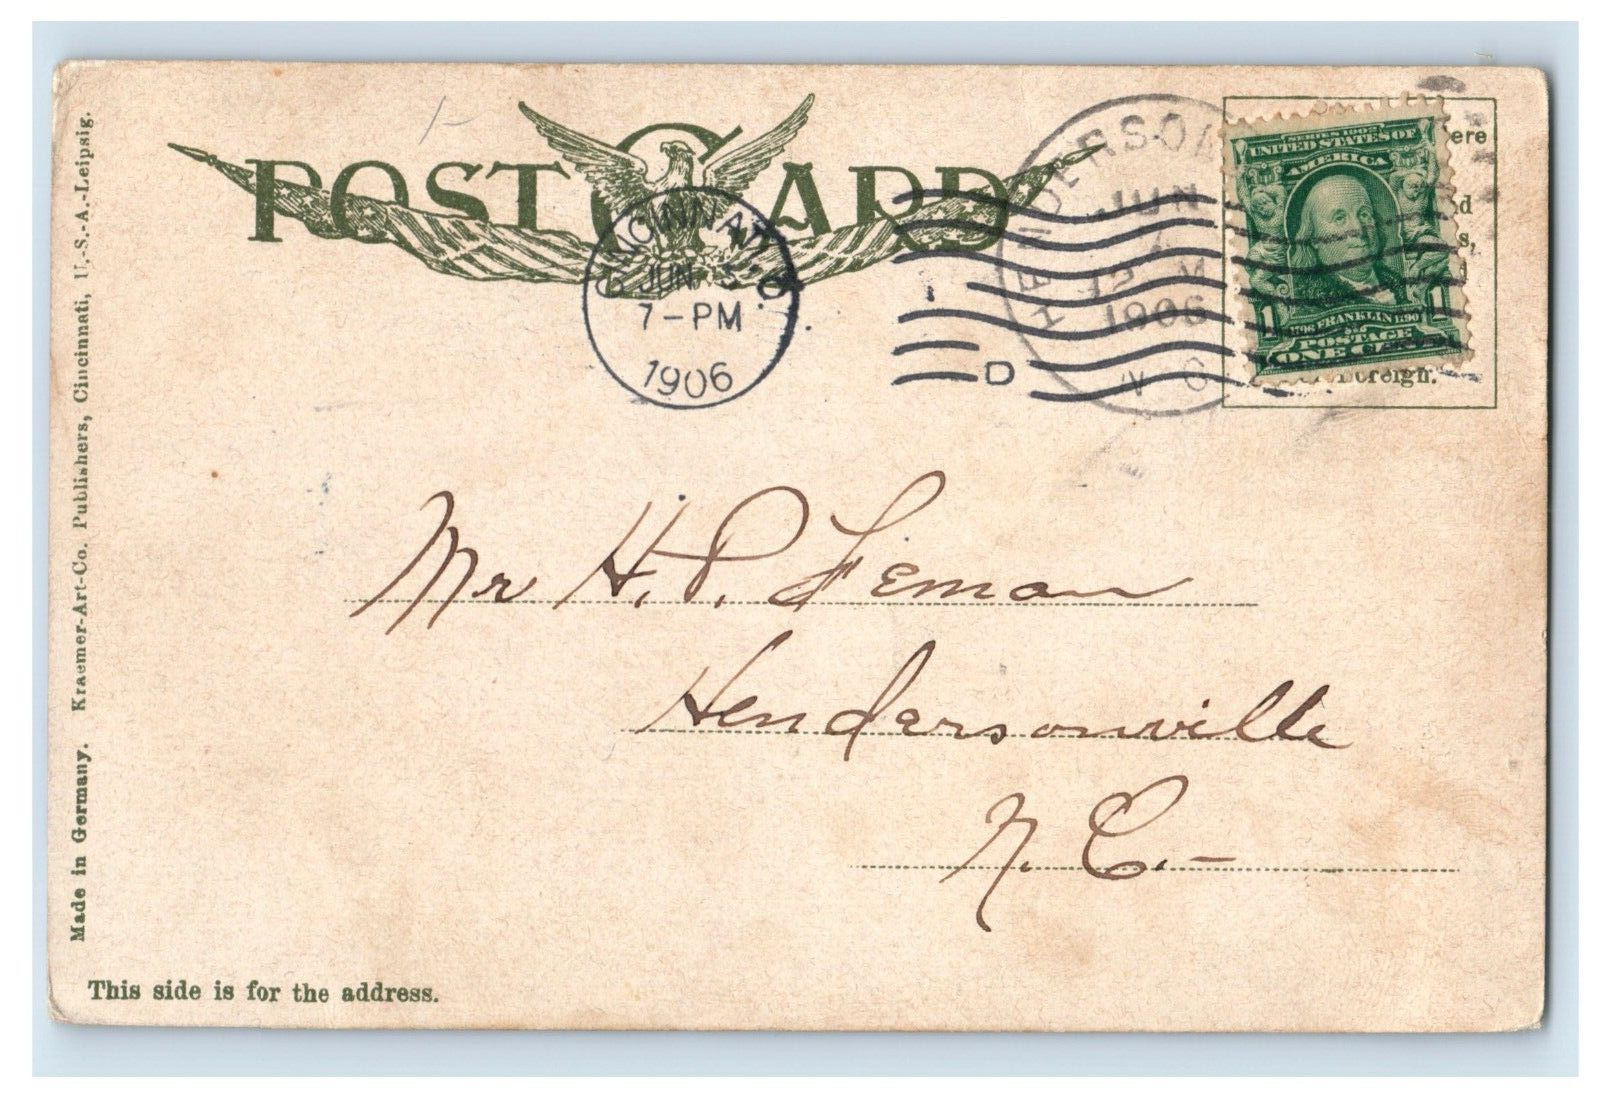 POST CARD
CINCINNATI, O.
JUN 5
7-PM
1906
D
HENDERSON
JUN
12 M
1906
N C
SERIES 1902
UNITED STATES OF
AMERICA
1706 FRANKLIN 1790
POSTAGE
1 ONE CENT 1
ere
Foreign.
Mr H. P.
Hendersonville
N. C.–
This side is for the address.
Made in Germany. Kraemer-Art-Co. Publishers, Cincinnati, U.-S.-A.-Leipsig.